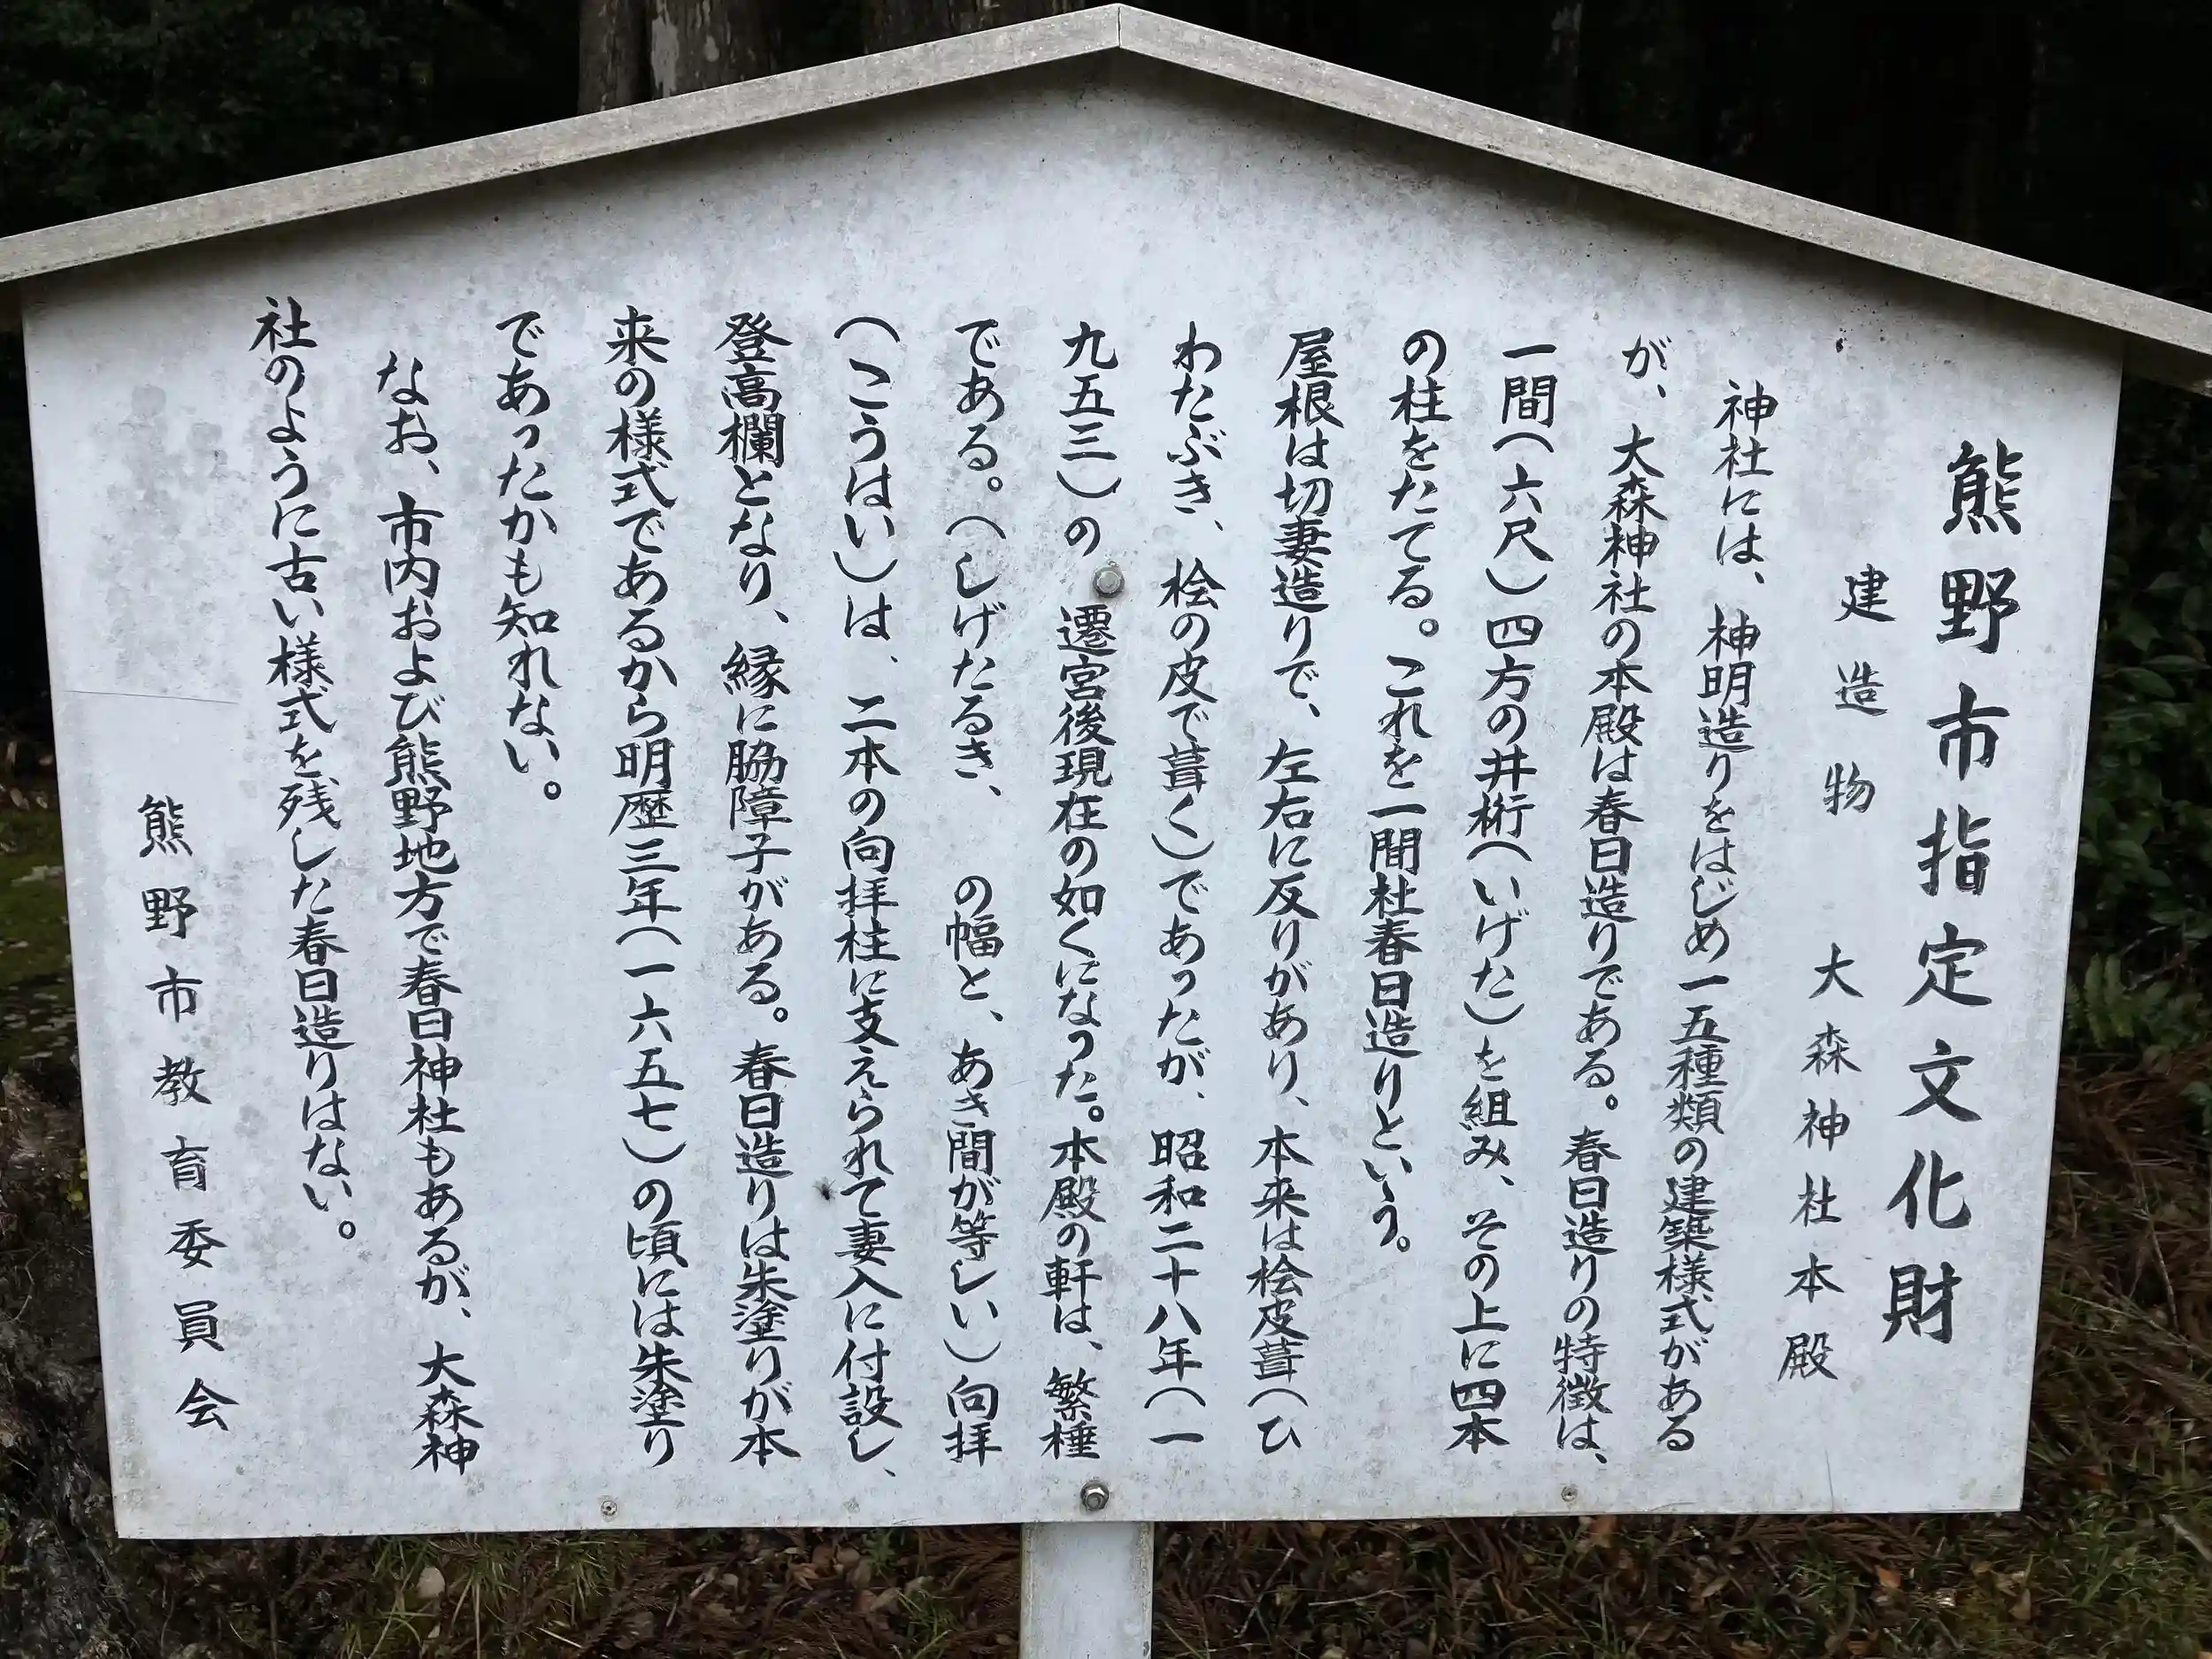 熊野市指定文化財
建造物　大森神社本殿
神社には、神明造りをはじめ一五種類の建築様式がある
が、大森神社の本殿は春日造りである。春日造りの特徴は、
一間(六尺)四方の井桁(いげた)を組み、その上に四本
の柱をたてる。これを一間社春日造りという。
屋根は切妻造りで、左右に反りがあり、本来は桧皮葺(ひ
わたぶき、桧の皮で葺く)であったが、昭和二十八年(一
九五三)の　遷宮後現在の如くになった。本殿の軒は、繁棰
である。(しげたるき、　の幅と、あき間が等しい)向拝
(こうはい)は、二本の向拝柱に支えられて妻入に付設し、
登高欄となり、縁に脇障子がある。春日造りは朱塗りが本
来の様式であるから明歴三年(一六五七)の頃には朱塗り
であったかも知れない。
なお、市内および熊野地方で春日神社もあるが、大森神
社のように古い様式を残した春日造りはない。
熊野市教育委員会